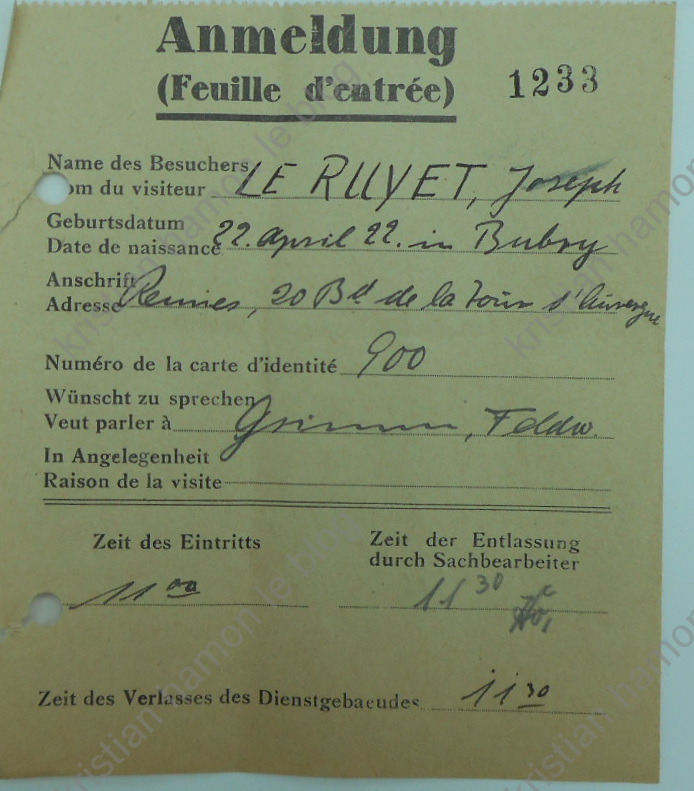 Anmeldung
(Feuille d'entrée) 1233
Name des Besuchers
om du visiteur LE RUYET, Joseph
Geburtsdatum
Date de naissance 22. April 22. in Bubry
Anschrift
Adresse Rennes, 20 Bd de la Tour d'Auvergne
Numéro de la carte d'identité 900
Wünscht zu sprechen
Veut parler à Grimm, Feldw.
In Angelegenheit
Raison de la visite
Zeit des Eintritts Zeit der Entlassung
durch Sachbearbeiter
11 00 11 30
Zeit des Verlasses des Dienstgebaeudes 11 30
kristian hamon le blog